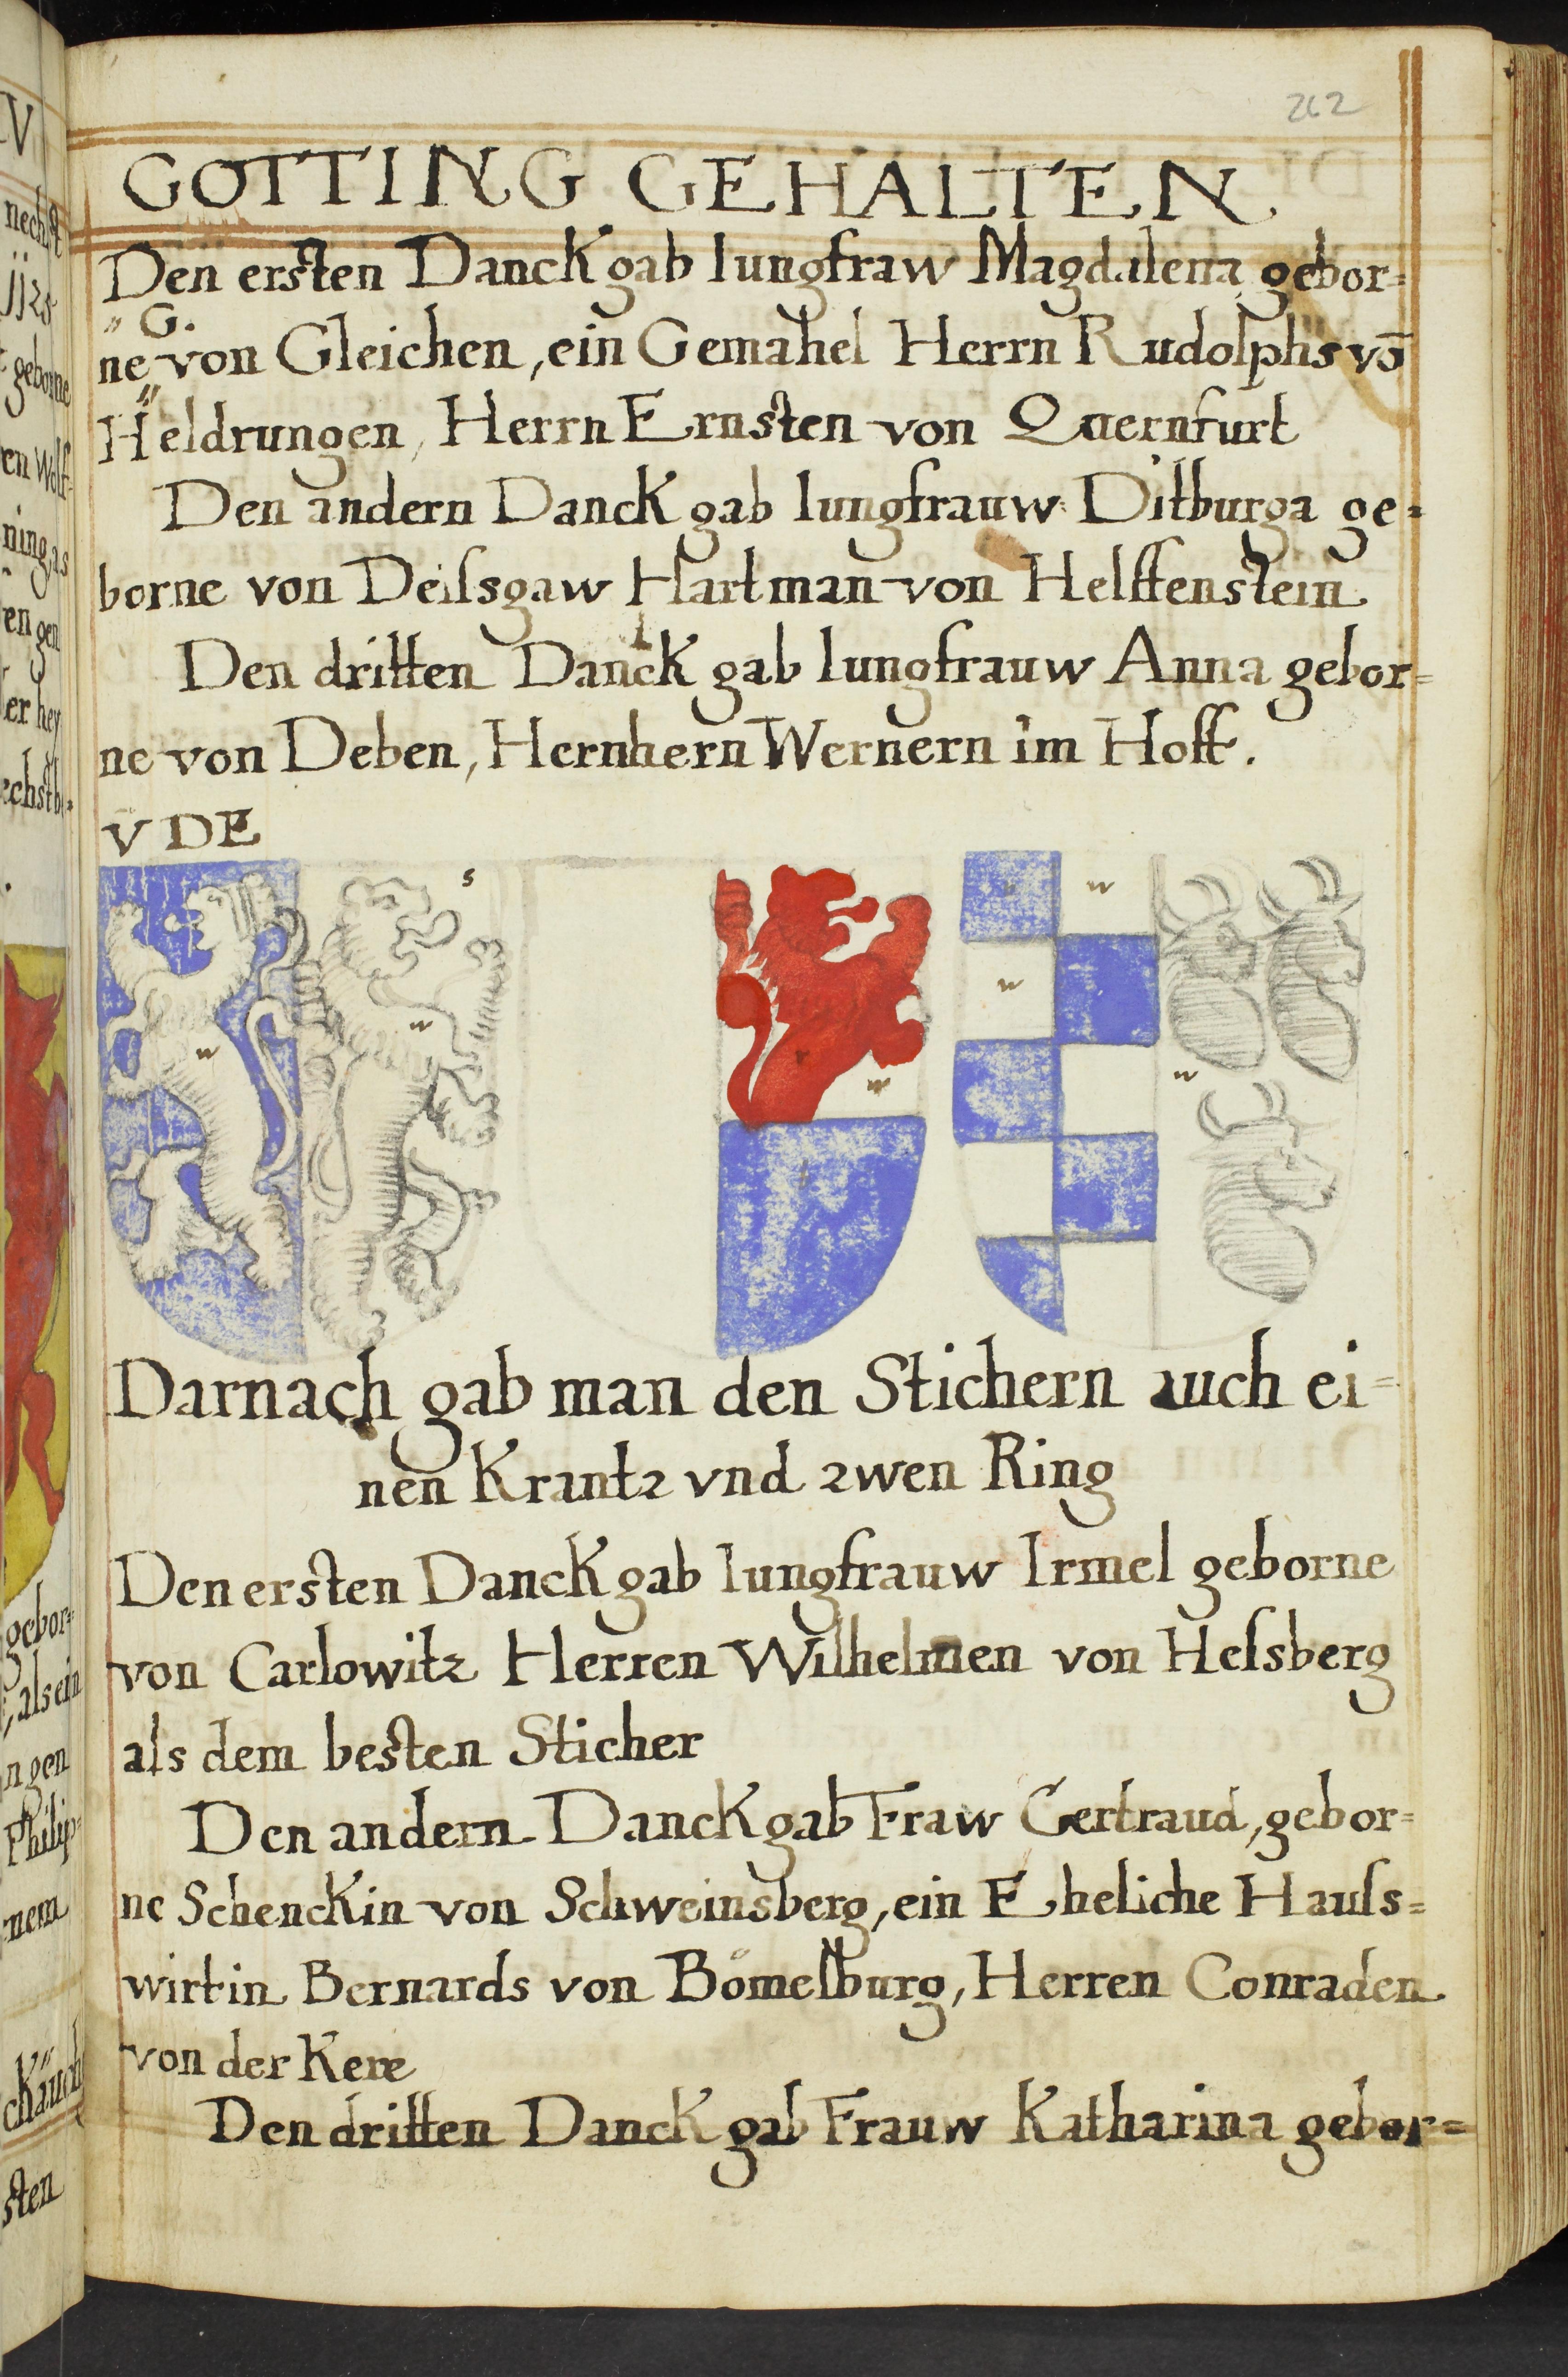 262
GOTTING GEHALTEN
Den ersten Danck gab Iungfraw Magdalena gebor=
G.
ne von Gleichen, ein Gemahel Herrn Rudolphs vō
Heldrungen, Herrn Ernsten von Quernfurt
Den andern Danck gab Iungfrauw Ditburga ge=
borne von Deilsgaw Hartman von Helffenstein
Den dritten Danck gab Iungfrauw Anna gebor=
ne von Deben, Hernhern Wernern im Hoff.
V DE
s
w
w
w
w
w
w
Darnach gab man den Stichern auch ei=
nen Krantz vnd zwen Ring
Den ersten Danck gab Iungfrauw Irmel geborne
von Carlowitz Herren Wilhelmen von Helsberg
als dem besten Sticher
Den andern Danck gab Fraw Gertraud, gebor=
ne Schenckin von Schweinsberg, ein Eheliche Hauls=
wirtin Bernards von Bömelburg, Herren Conraden
von der Kere
Den dritten Danck gab Frauw Katharina gebor=